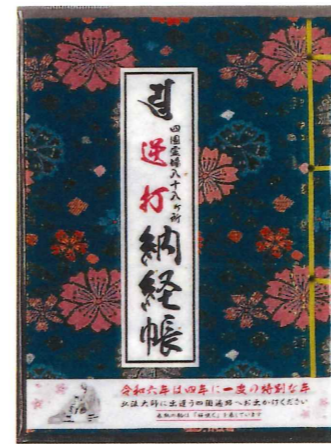 四国霊場八十八ヶ所
逆打納経帳
令和六年は四年に一度の特別な年
弘法大師に出逢う四国遍路へお出かけください